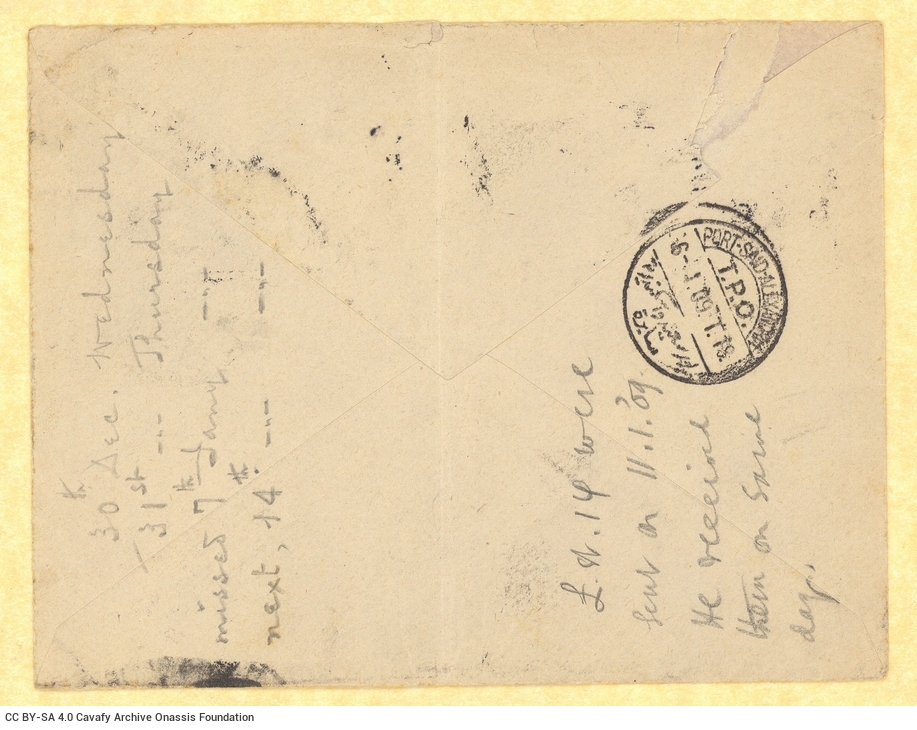 30th Dec. Wednesday
31st --- Thursday
missed 7th Jany. ---
next, 14th. --- ---
sent on 11.1.'09.
He received
them on same
day.
PORT-SAID-ALEXANDRIA
T.P.O.
CC BY-SA 4.0 Cavafy Archive Onassis Foundation